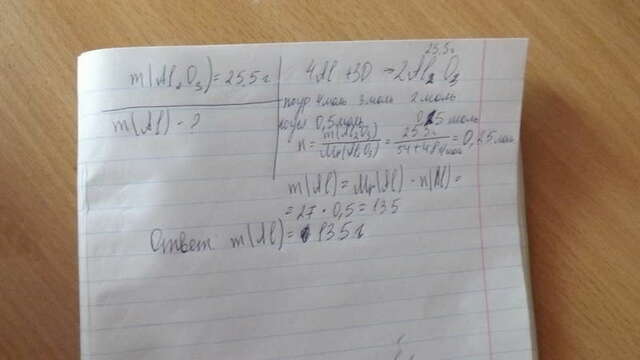 m(Al₂O₃) = 25,5 г
m(Al) - ?
25,5г
4Al + 3O → 2Al₂O₃
поур 4моль 3 моль 2 моль
0,5 моль 0,25 моль
n = m(Al₂O₃) / Mr(Al₂O₃) = 25,5г / 54+48 = 0,25 моль
m(Al) = Mr(Al) · n(Al) =
= 27 · 0,5 = 13 5
Ответ m(Al) = 13 5 г